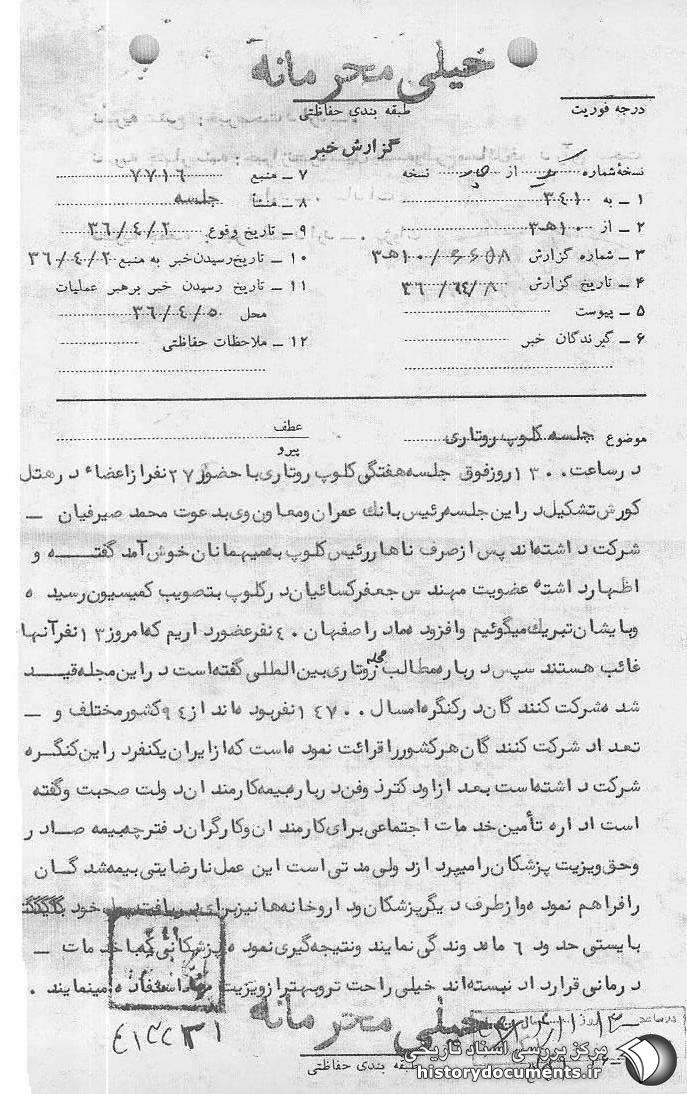 خیلی محرمانه
درجه فوریت
طبقه بندی حفاظتی
گزارش خبر
نسخهٔ شماره از نسخه
۱ ـ به ۳۴۱
۲ ـ از ۱۰هـ۳
۳ ـ شماره گزارش
۴ ـ تاریخ گزارش
۵ ـ پیوست
۶ ـ گیرندگان خبر
۷ ـ منبع ۷۷۱۶
۸ ـ منشأ جلسه
۹ ـ تاریخ وقوع ۳۶/۴/۲
۱۰ ـ تاریخ رسیدن خبر به منبع ۳۶/۴/۲
۱۱ ـ تاریخ رسیدن خبر برهبر عملیات
محل ۳۶/۴/۵
۱۲ ـ ملاحظات حفاظتی
موضوع جلسه کلوپ روتاری
عطف
پیرو
درساعت ۱۳۰۰ روزفوق جلسه هفتگی کلوپ روتاری با حضور ۲۷ نفر از اعضاء درهتل
کورش تشکیل در این جلسه رئیس بانک عمران ومعاون وی بدعوت محمد صیرفیان ـ
شرکت داشته‌اند پس ازصرف ناهار رئیس کلوپ به میهمانان خوش‌آمد گفتـــه و
اظهار داشته عضویت مهندس جعفر کسائیان در کلوپ بتصویب کمیسیون رسیده
وبایشان تبریک میگوئیم وافزوده ما در اصفهان ۴۰ نفرعضو داریم که امروز ۱۳ نفر آنها
غائب هستند سپس درباره مطالب مجله روتاری بین المللی گفته است در این مجله قیـد
شده شرکت کنندگان در کنگره امسال ۱۴۷۰۰ نفر بوده‌اند از ۹۴ کشور مختلف و ـ
تعداد شرکت کنندگان هر کشور را قرائت نموده است که از ایران یکنفر در این کنگره
شرکت داشته است بعد از او دکتر ذوفن درباره بیمه کارمندان دولت صحبت وگفته
است اداره تأمین خدمات اجتماعی برای کارمندان وکارگران دفترچه بیمه صادر
وحق ویزیت پزشکان را میپردازد ولی مدتی است این عمل نارضایتی بیمه شدگـان
را فراهم نموده و از طرف دیگر پزشکان و داروخانه‌ها نیز برای دریافت پول خود
بایستی حدود ۶ ماه دوندگی نمایند ونتیجه‌گیری نموده پزشکانی که با خدمات ـ
درمانی قرارداد نبسته‌اند خیلی راحت تر وبهتر از ویزیت استفاده مینمایند .
خیلی محرمانه
طبقه بندی حفاظتی
مرکز بررسی اسناد تاریخی
historydocuments.ir